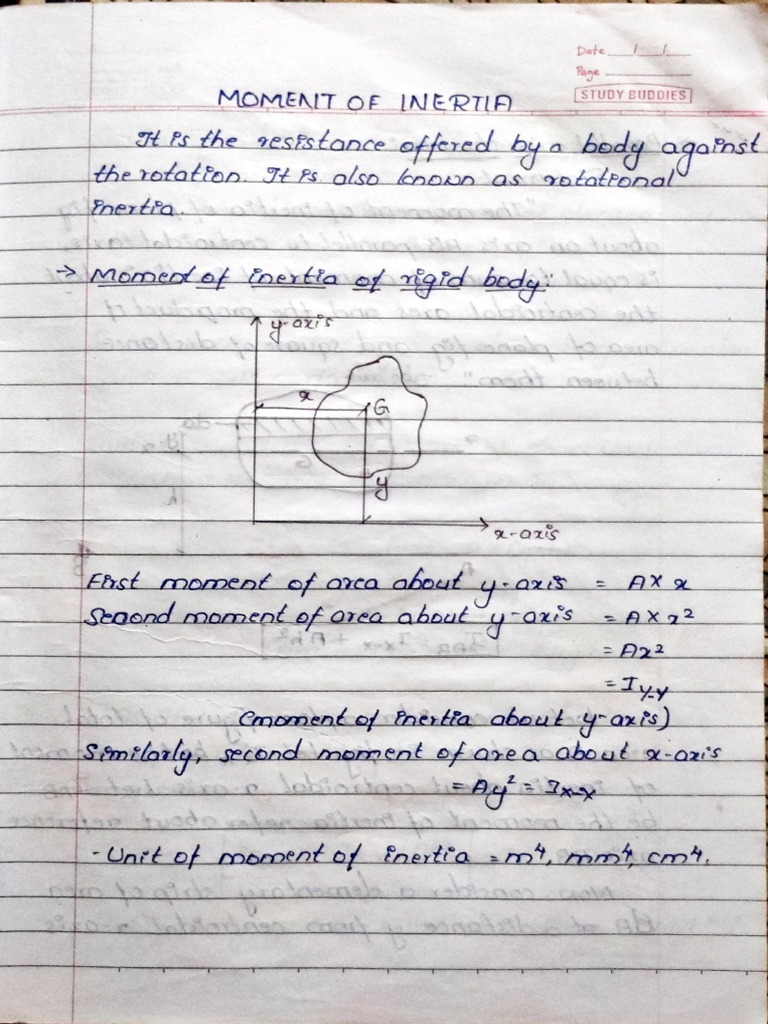 Date / /
Page
STUDY BUDDIES
MOMENT OF INERTIA
It is the resistance offered by a body against
the rotation. It is also known as rotational
inertia.
→ Moment of inertia of rigid body:
y-axis
x
G
y
x-axis
First moment of area about y-axis = A× x
Second moment of area about y-axis = A× x²
= Ax²
= I y-y
(moment of inertia about y-axis)
Similarly, second moment of area about x-axis
= Ay² = I x-x
- Unit of moment of inertia = m⁴, mm⁴, cm⁴.